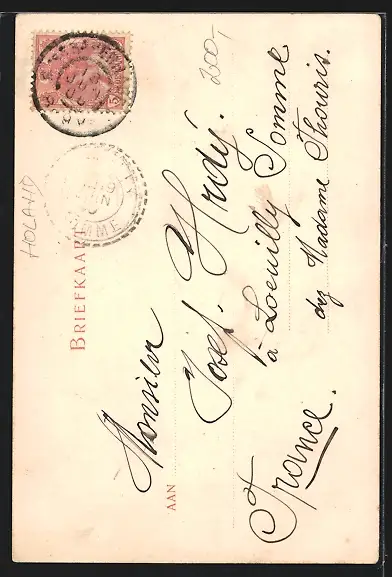 BRIEFKAART
AAN
Monsieur
Josef. Hrdý.
à Loeuilly Somme
chez Madame Thouris.
France.
HOLAND
200,-
SOMME